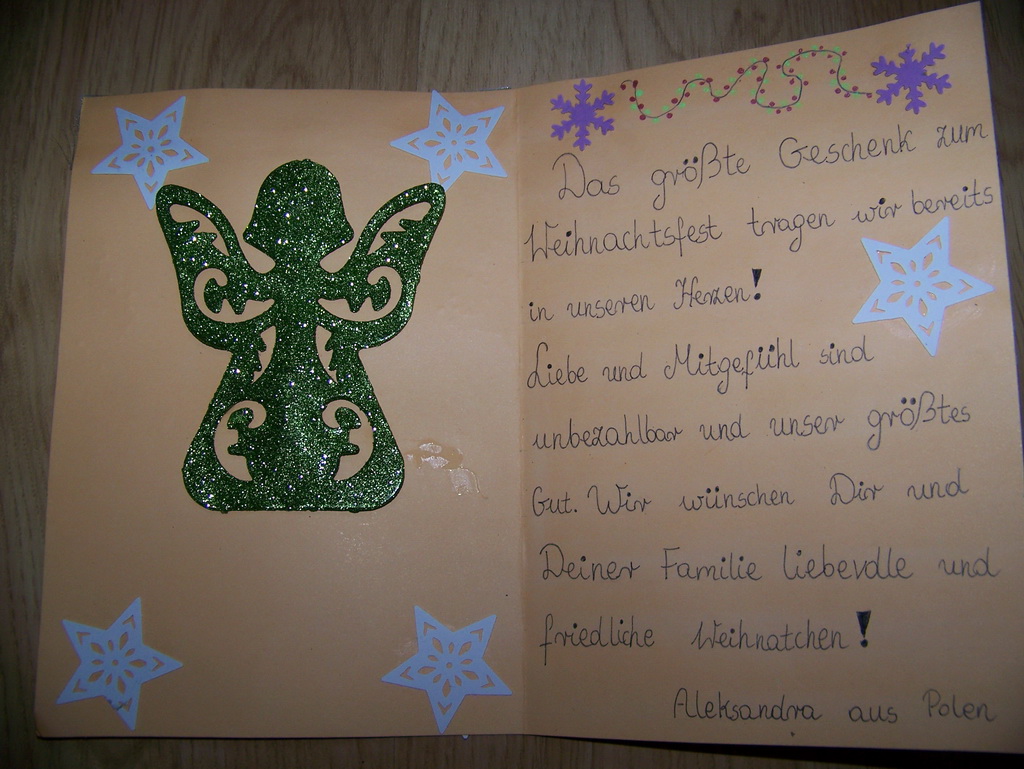 Das größte Geschenk zum
Weihnachtsfest tragen wir bereits
in unseren Herzen!
Liebe und Mitgefühl sind
unbezahlbar und unser größtes
Gut. Wir wünschen Dir und
Deiner Familie liebevolle und
friedliche Weihnatchen!
Aleksandra aus Polen